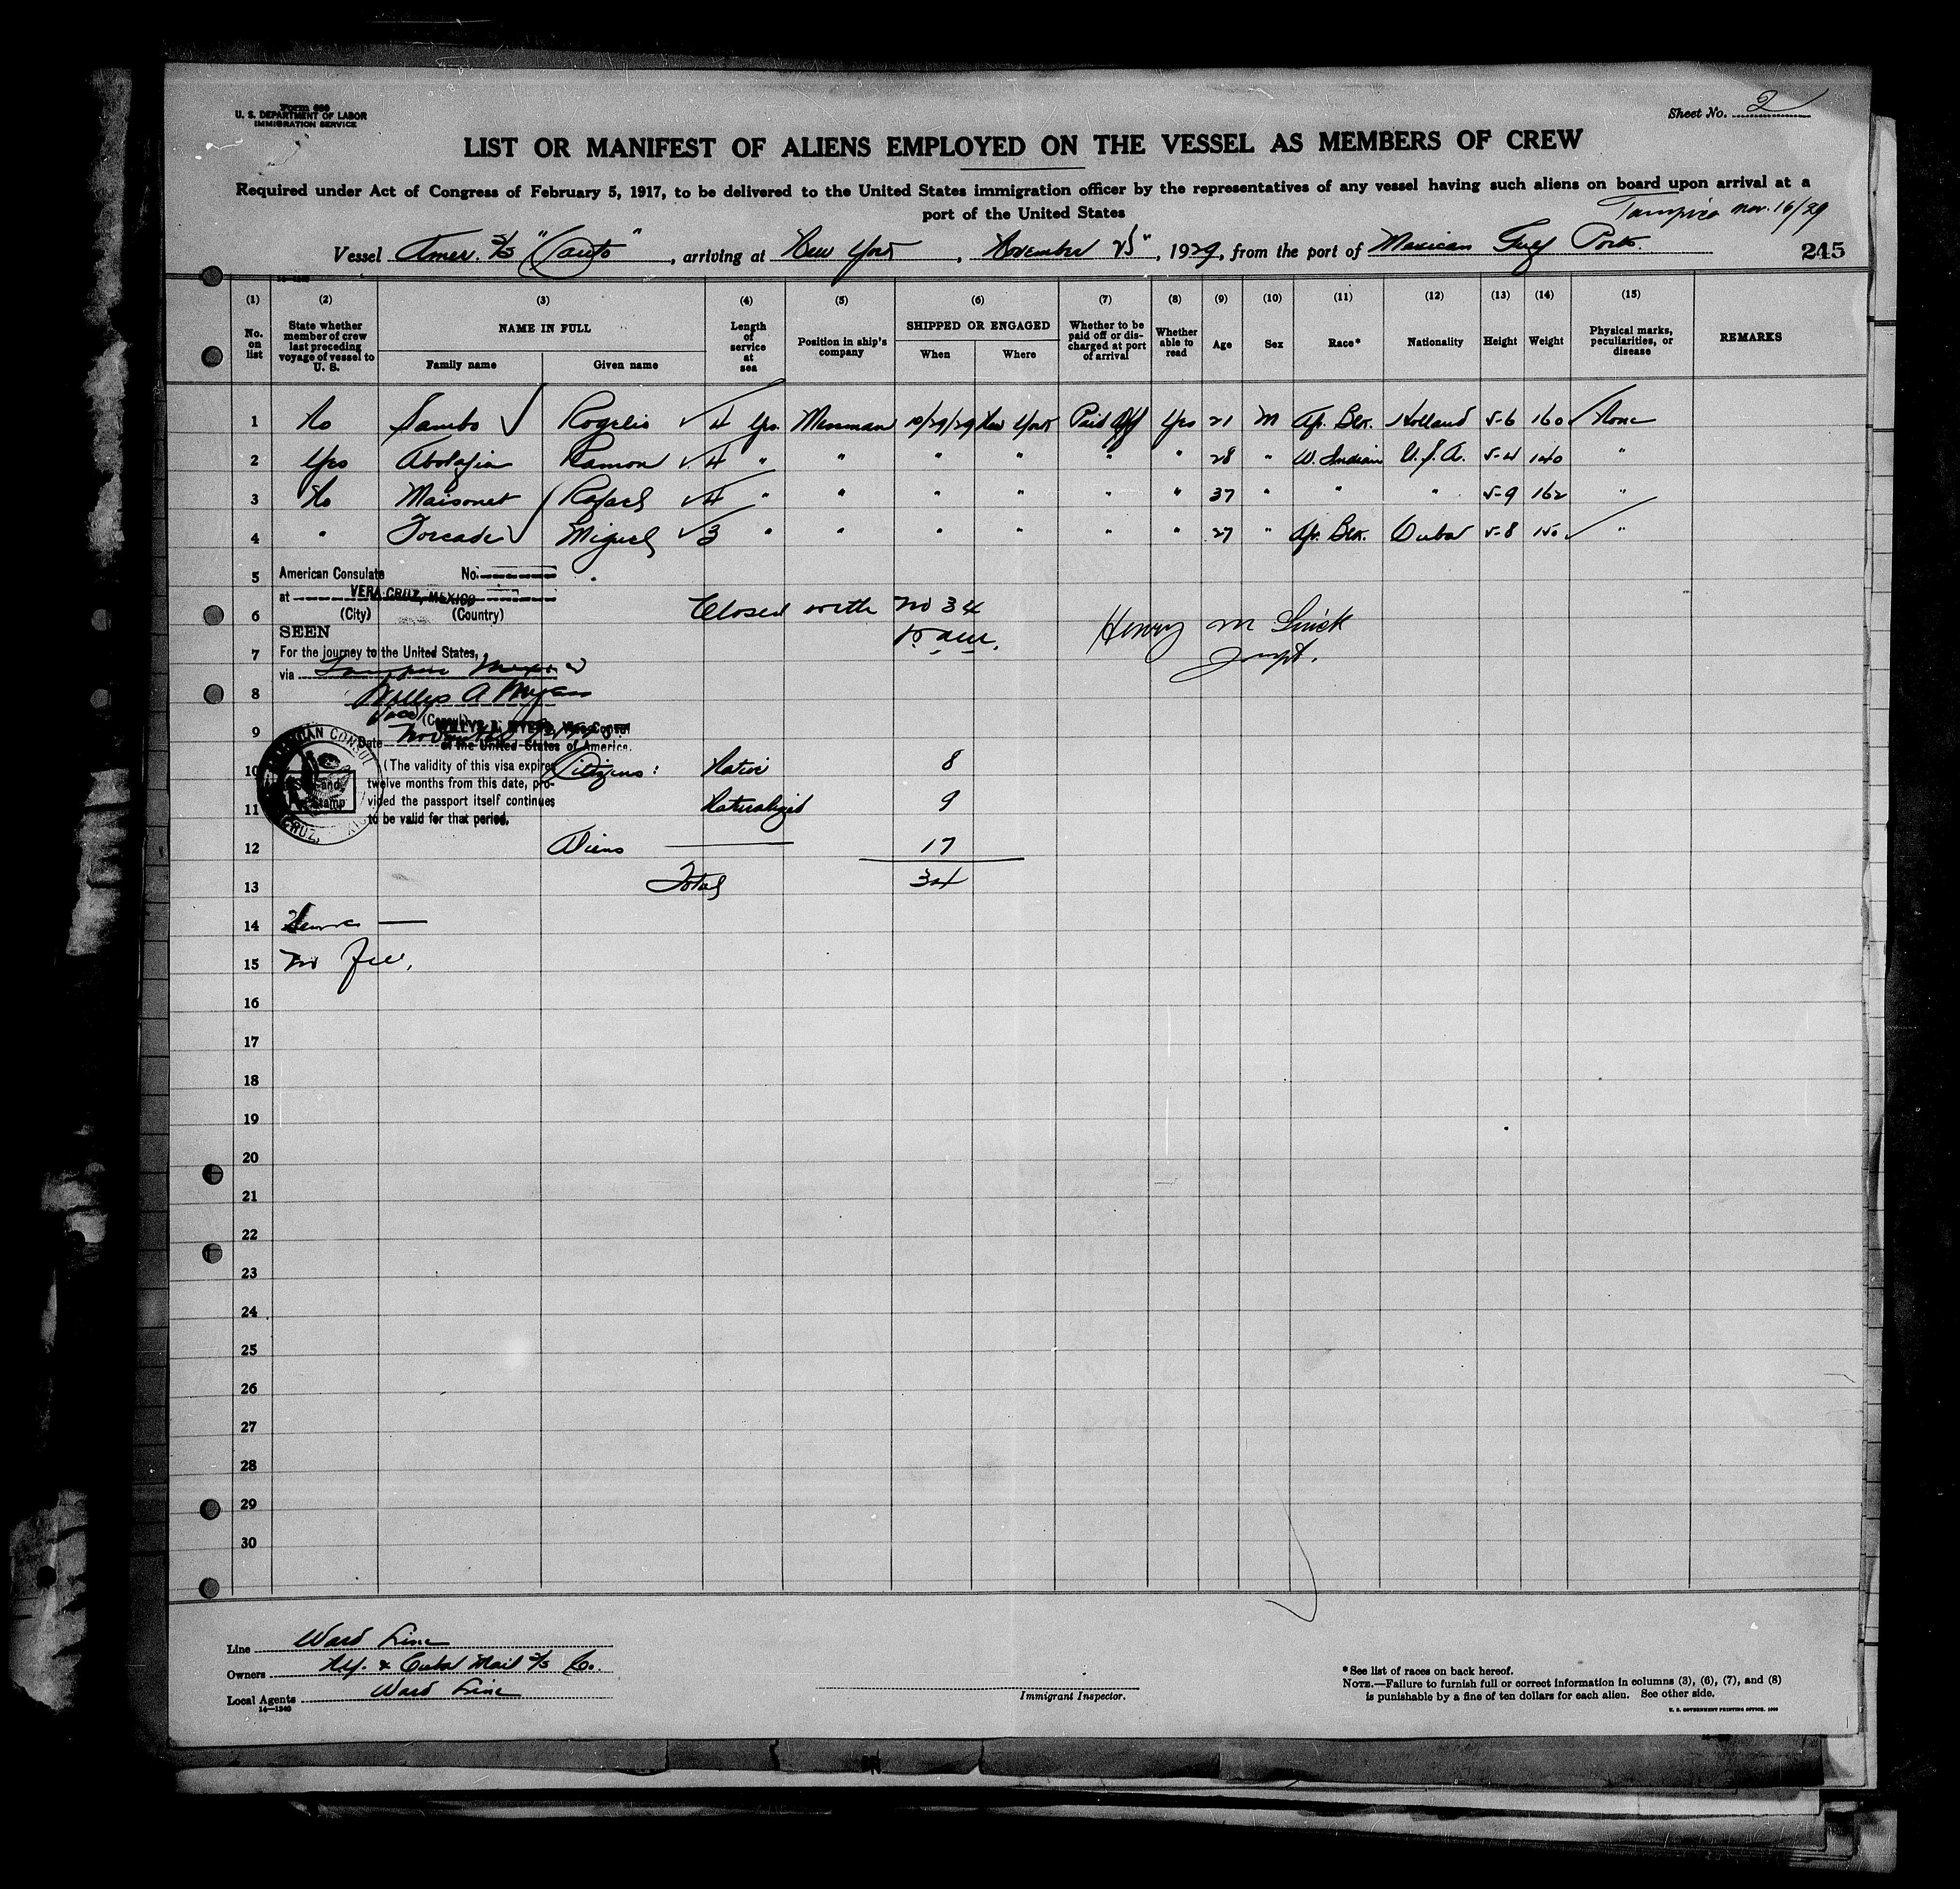 Form 680
U. S. DEPARTMENT OF LABOR
IMMIGRATION SERVICE
Sheet No. 2
LIST OR MANIFEST OF ALIENS EMPLOYED ON THE VESSEL AS MEMBERS OF CREW
Required under Act of Congress of February 5, 1917, to be delivered to the United States immigration officer by the representatives of any vessel having such aliens on board upon arrival at a
port of the United States
Tampico Nov. 16/29
Vessel Amer. S/S "Cauto", arriving at New York, November 25", 1929, from the port of Mexican Gulf Ports. 245
(1) (2) (3) (4) (5) (6) (7) (8) (9) (10) (11) (12) (13) (14) (15)
No. on list | State whether member of crew last preceding voyage of vessel to U. S. | NAME IN FULL | Family name | Given name | Length of service at sea | Position in ship's company | SHIPPED OR ENGAGED | When | Where | Whether to be paid off or discharged at port of arrival | Whether able to read | Age | Sex | Race* | Nationality | Height | Weight | Physical marks, peculiarities, or disease | REMARKS
1 No Sambo Rogelio 4 Yrs. Messman 10/29/29 New York Paid Off Yes 21 M Afr. Blk. Holland 5-6 160 None
2 Yes Abolafia Ramon 4 " " " " " " 28 " W. Indian U.S.A. 5-4 140 "
3 No Maisonet Rafael 4 " " " " " " 37 " " " 5-9 162 "
4 " Forcade Miguel 3 " " " " " " 27 " Afr. Blk. Cuba 5-8 150 "
5 American Consulate No.
at VERA CRUZ, MEXICO
6 (City) (Country)
Closed with No 34
SEEN
Henry M
7 For the journey to the United States,
via Tampico Mexico
8 Willys A Myers
Vice (Consul)
WILLYS A. MYERS, Vice Consul
9 Date November
of the United States of America.
10 (The validity of this visa expires
twelve months from this date, pro-
11 vided the passport itself continues
to be valid for that period.
Citizens: Native 8
Naturalized 9
12 Aliens 17
13 Total 34
14
15 No Fee.
16
17
18
19
20
21
22
23
24
25
26
27
28
29
30
Line Ward Line
Owners N.Y. & Cuba Mail S/S Co.
Local Agents Ward Line
14—1240
Immigrant Inspector.
*See list of races on back hereof.
NOTE.—Failure to furnish full or correct information in columns (3), (6), (7), and (8)
is punishable by a fine of ten dollars for each alien. See other side.